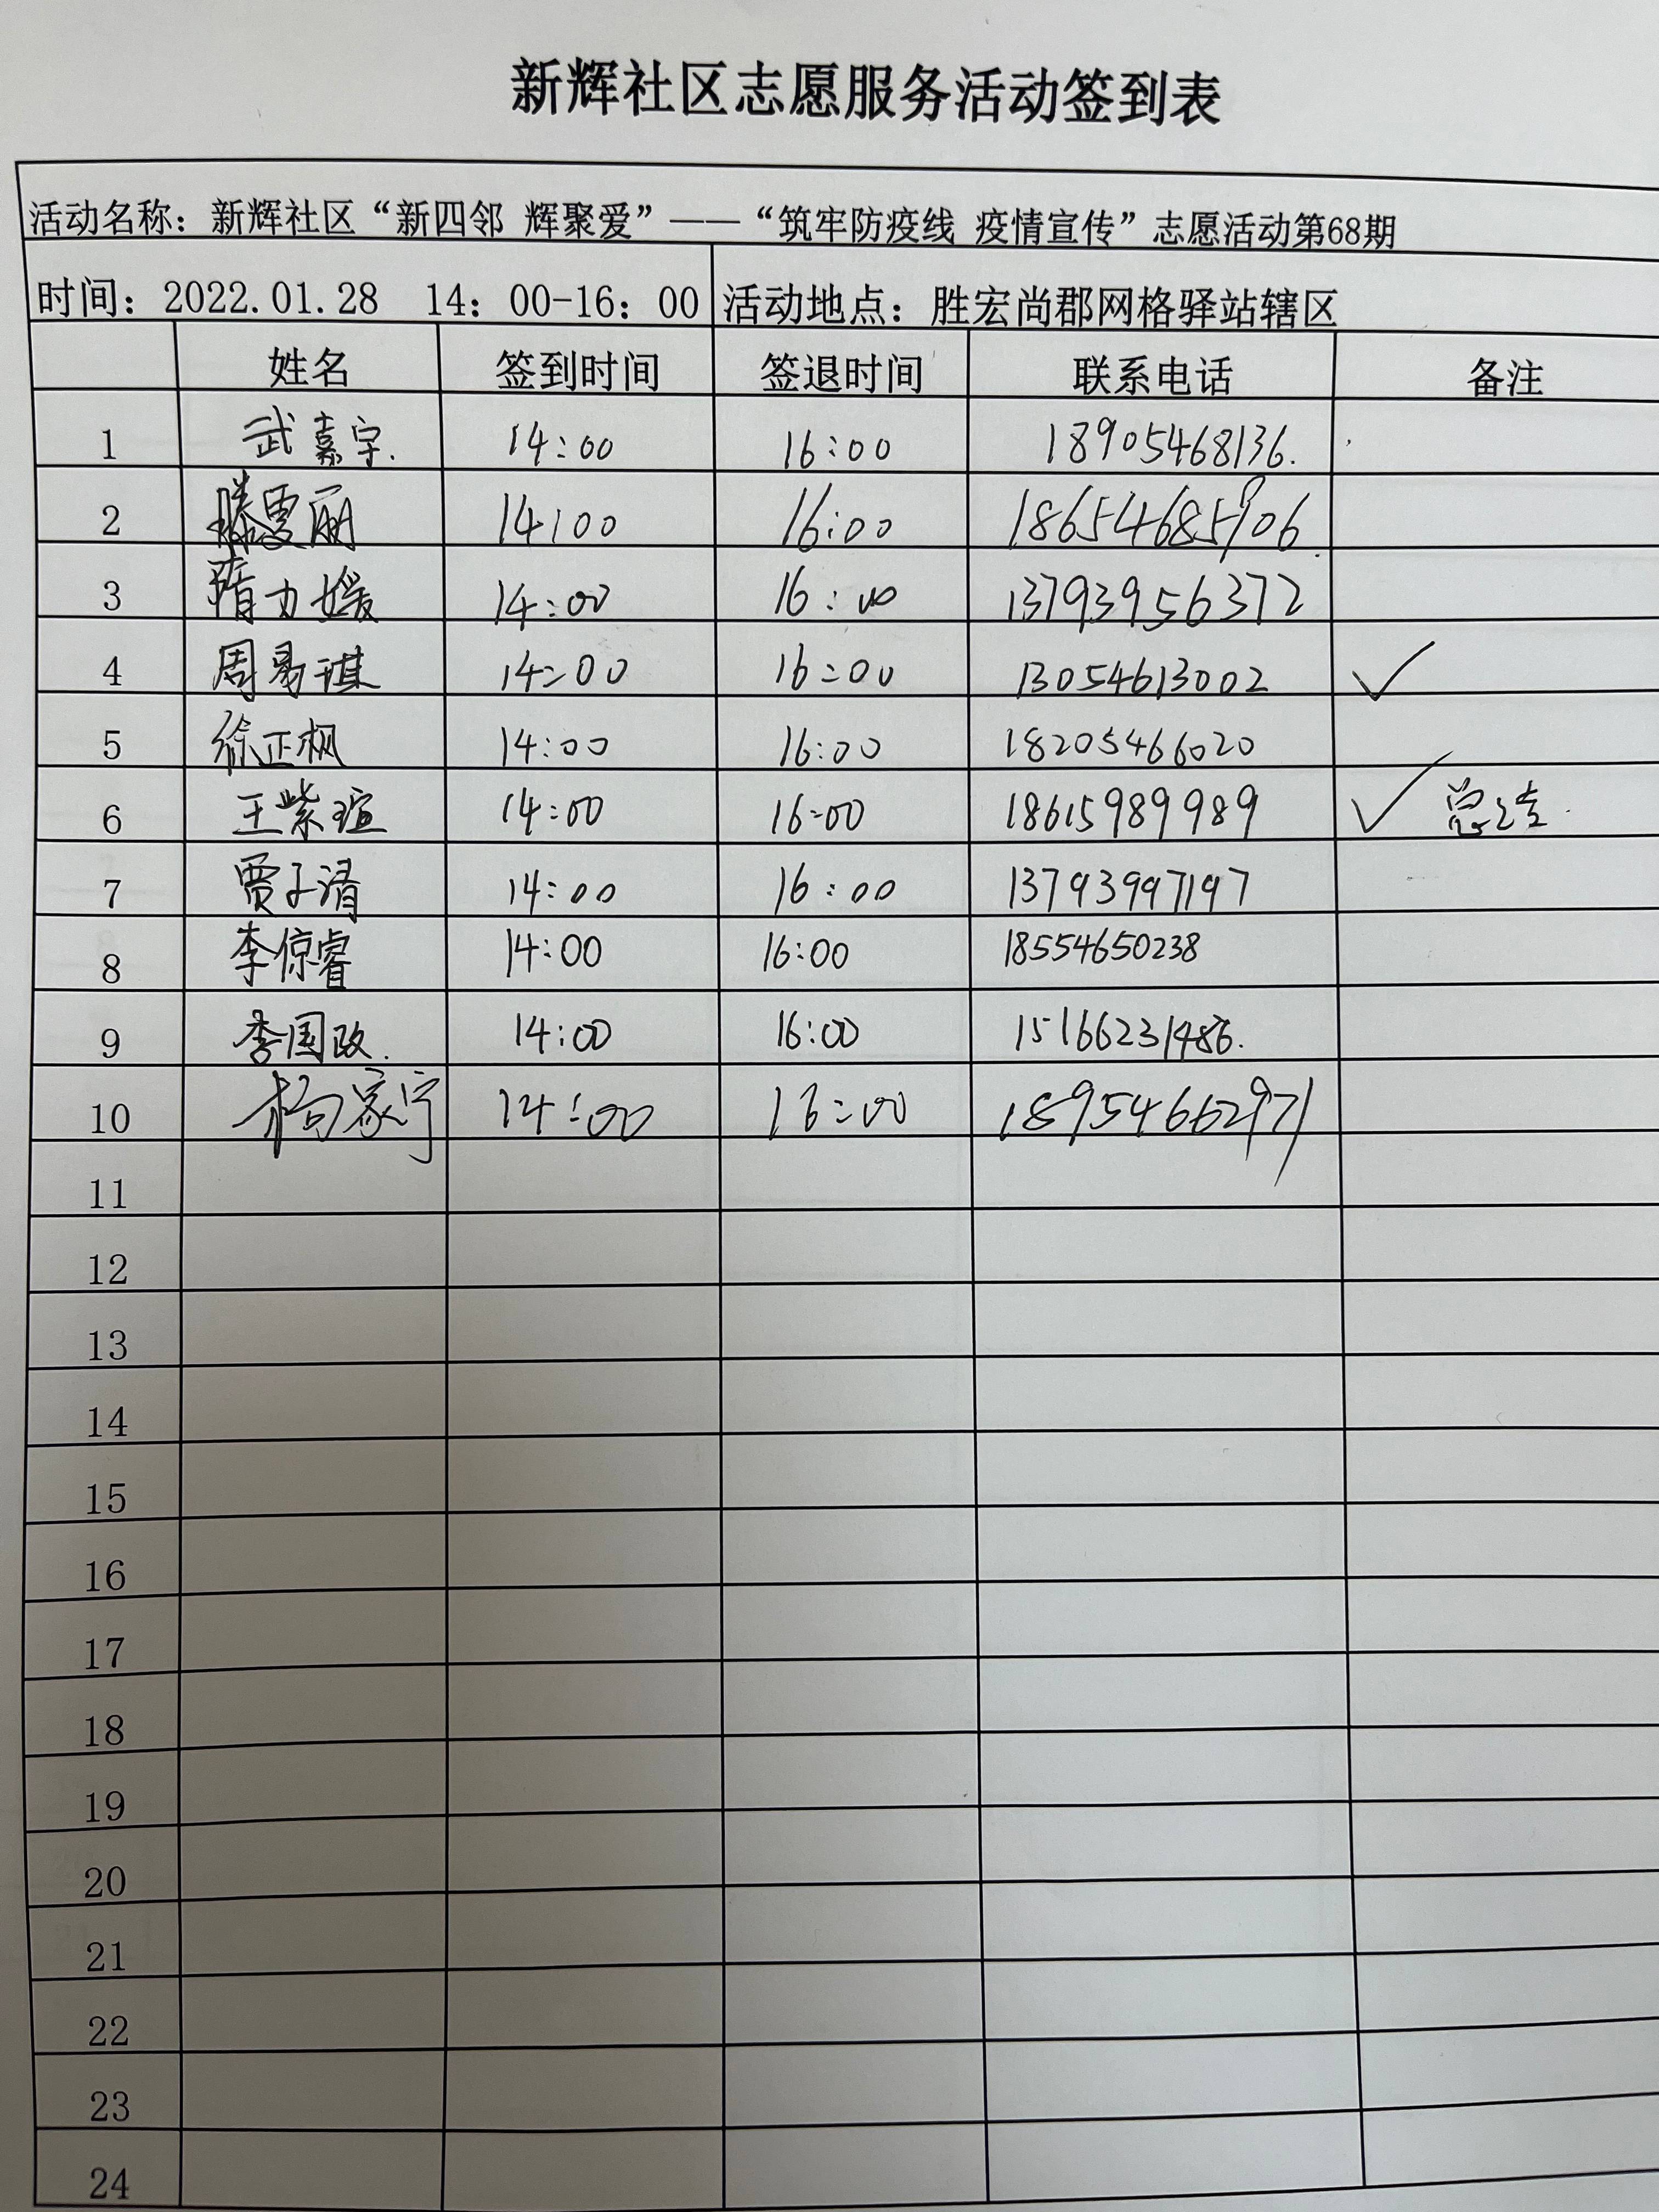 新辉社区志愿服务活动签到表
活动名称：新辉社区“新四邻 辉聚爱”——“筑牢防疫线 疫情宣传”志愿活动第68期
时间：2022.01.28 14：00-16：00 活动地点：胜宏尚郡网格驿站辖区
姓名 签到时间 签退时间 联系电话 备注
1 武嘉宇. 14:00 16:00 18905468136.
2 滕雯丽 14:00 16:00 18654685906.
3 隋力媛 14:00 16:00 13793956372
4 周易琪 14:00 16:00 13054613002 ✓
5 徐正枫 14:00 16:00 18205466020
6 王紫瑄 14:00 16:00 18615989989 ✓ 总结.
7 贾子清 14:00 16:00 13793997197
8 李倞睿 14:00 16:00 18554650238
9 李国政. 14:00 16:00 15166231486.
10 杨家宁 14:00 16:00 18954662971
11
12
13
14
15
16
17
18
19
20
21
22
23
24